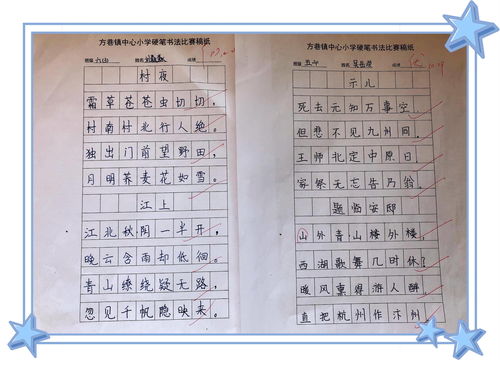 方巷镇中心小学硬笔书法比赛稿纸
班级 姓名 成绩
村夜
霜草苍苍虫切切，
村南村北行人绝。
独出门前望野田，
月明荞麦花如雪。
江上
江北秋阴一半开，
晚云含雨却低徊。
青山缭绕疑无路，
忽见千帆隐映来。
方巷镇中心小学硬笔书法比赛稿纸
班级 姓名 成绩
示儿
死去元知万事空，
但悲不见九州同。
王师北定中原日，
家祭无忘告乃翁。
题临安邸
山外青山楼外楼，
西湖歌舞几时休？
暖风熏得游人醉，
直把杭州作汴州。